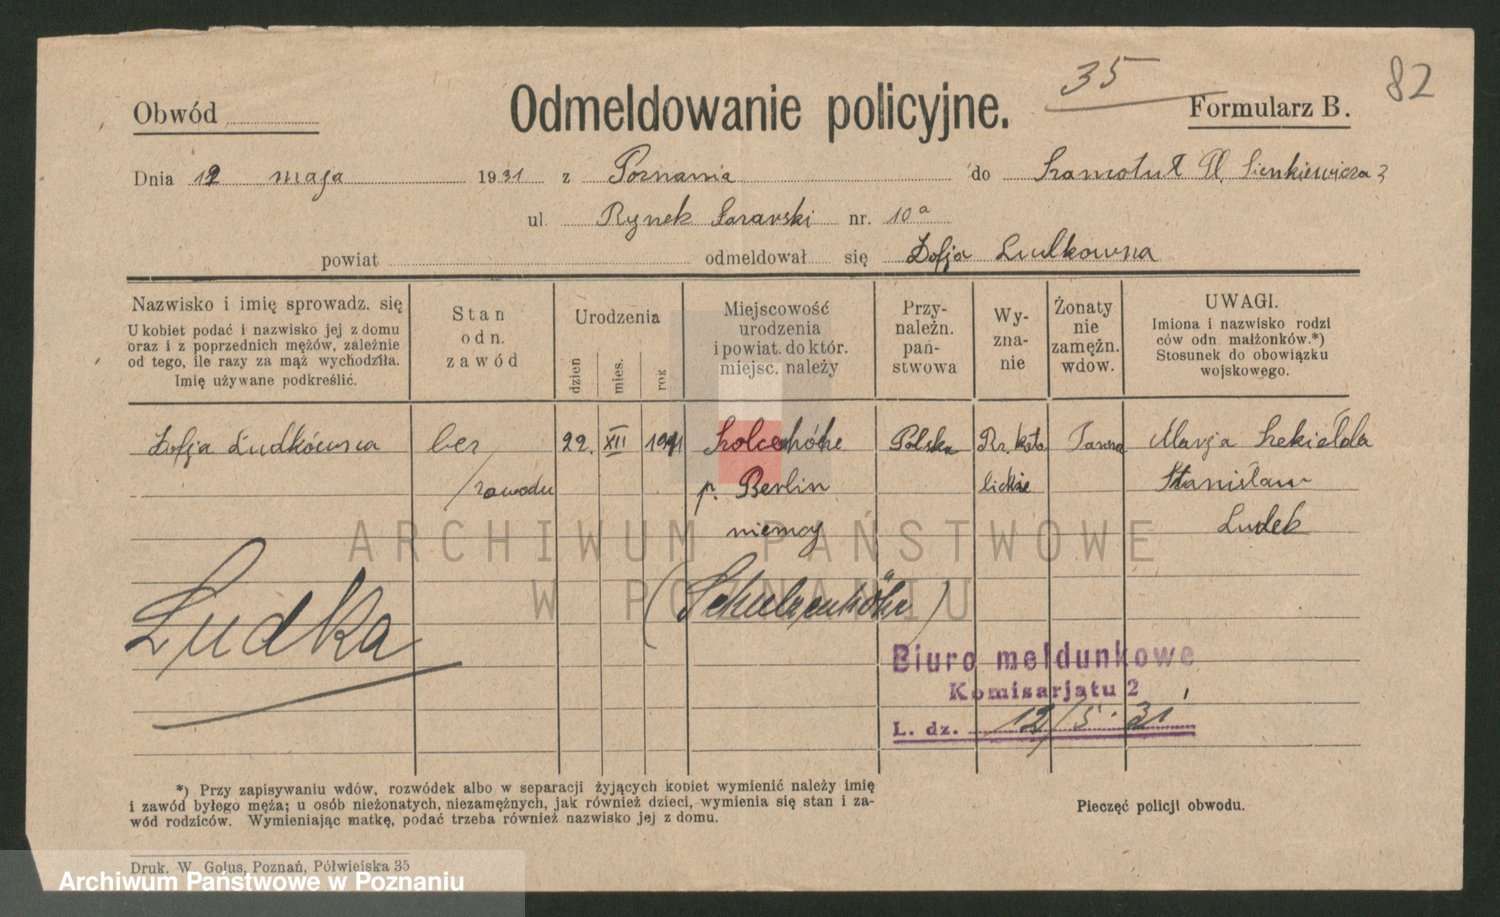 35
82
Obwód
Odmeldowanie policyjne.
Formularz B.
Dnia 12 maja 1931 z Poznania do Szamotuł Pl. Sienkiewicza 2
ul. Rynek Łazarski nr. 10a
powiat odmeldował się Zofja Ludkowna
Nazwisko i imię sprowadz. się
U kobiet podać i nazwisko jej z domu
oraz i z poprzednich mężów, zależnie
od tego, ile razy za mąż wychodziła.
Imię używane podkreślić.
Stan
odn.
zawód
Urodzenia
dzień
mies.
rog
Miejscowość
urodzenia
i powiat. do któr.
miejsc. należy
Przy-
należn.
pań-
stwowa
Wy-
zna-
nie
Żonaty
nie
zamężn.
wdow.
UWAGI.
Imiona i nazwisko rodzi
ców odn. małżonków.*)
Stosunek do obowiązku
wojskowego.
Zofja Ludkówna
bez
zawodu
22. XII 1911
p. Berlin
niemcy
(Schulzenhöhe)
Polska
Rz. kato
lickie
Panna
Marja Szkiełda
Stanisław
Ludek
Ludka
ARCHIWUM PAŃSTWOWE
W POZNANIU
Biuro meldunkowe
Komisarjatu 2
L. dz. 12/5. 31
*) Przy zapisywaniu wdów, rozwódek albo w separacji żyjących kobiet wymienić należy imię
i zawód byłego męża; u osób nieżonatych, niezamężnych, jak również dzieci, wymienia się stan i za-
wód rodziców. Wymieniając matkę, podać trzeba również nazwisko jej z domu.
Pieczęć policji obwodu.
Druk. W. Golus, Poznań, Półwiejska 35
Archiwum Państwowe w Poznaniu